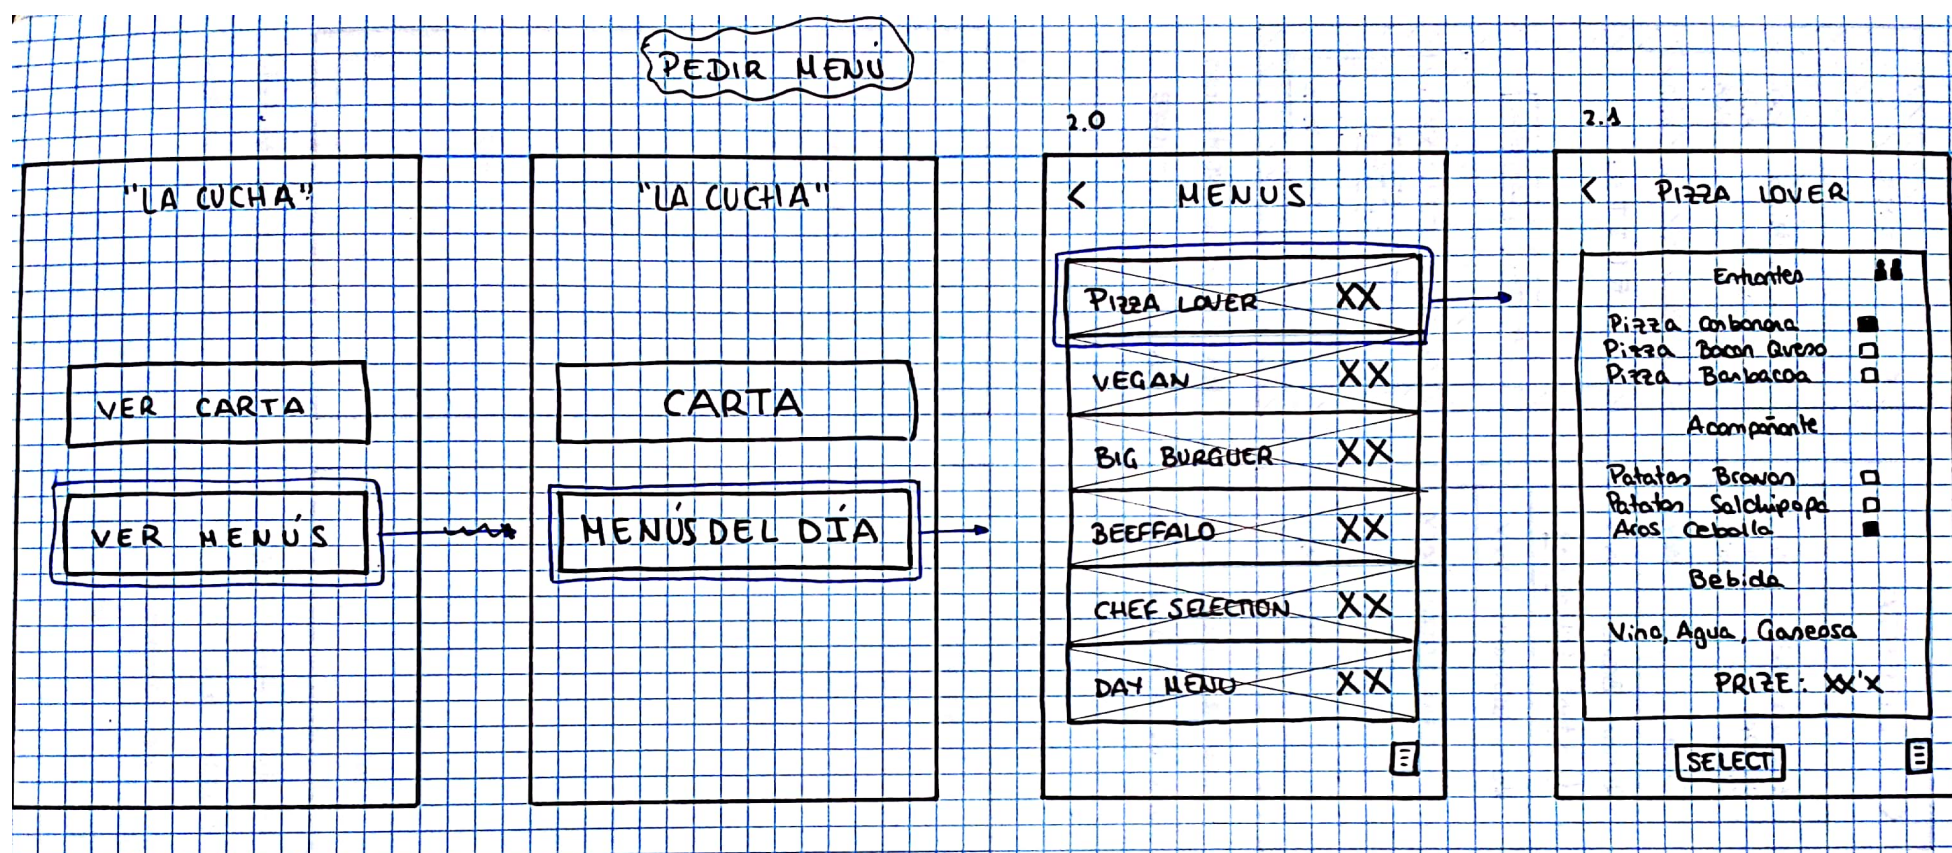 PEDIR MENÚ
"LA CUCHA"
VER CARTA
VER MENÚS
"LA CUCHA"
CARTA
MENÚS DEL DÍA
2.0
< MENUS
PIZZA LOVER XX
VEGAN XX
BIG BURGUER XX
BEEFFALO XX
CHEF SELECTION XX
DAY MENU XX
2.1
< PIZZA LOVER
Entrantes
Pizza Carbonara
Pizza Bacon Queso
Pizza Barbacoa
Acompañante
Patatas Bravas
Patatas Salchipapa
Aros Cebolla
Bebida
Vino, Agua, Gaseosa
PRIZE: XX'X
SELECT